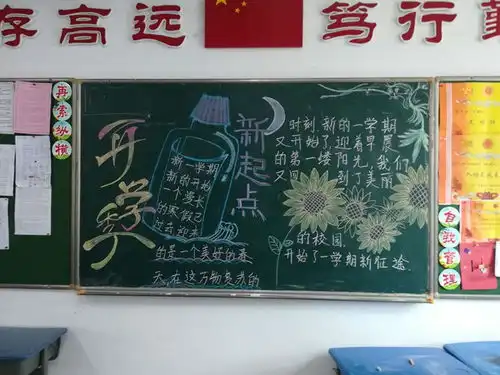 存高远
笃行勤
再索纵横
开学
新起点
新一学期
新的开始
一个漫长
的寒假已
的是一个美好的春
天,在这万物复苏的
时刻,新的一学期
又开始了,迎着早晨
的第一缕阳光,我们
又回到了美丽
的校园,
开始了一学期新征途
自我管理